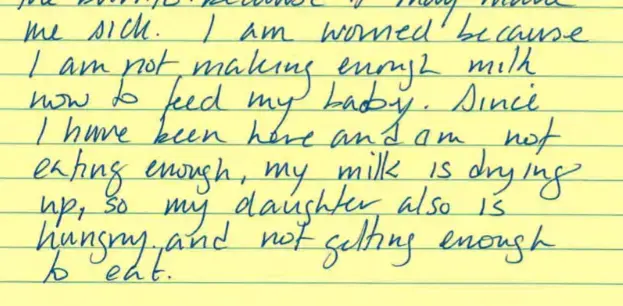 me sick. I am worried because
I am not making enough milk
now to feed my baby. Since
I have been here and am not
eating enough, my milk is drying
up, so my daughter also is
hungry and not getting enough
to eat.